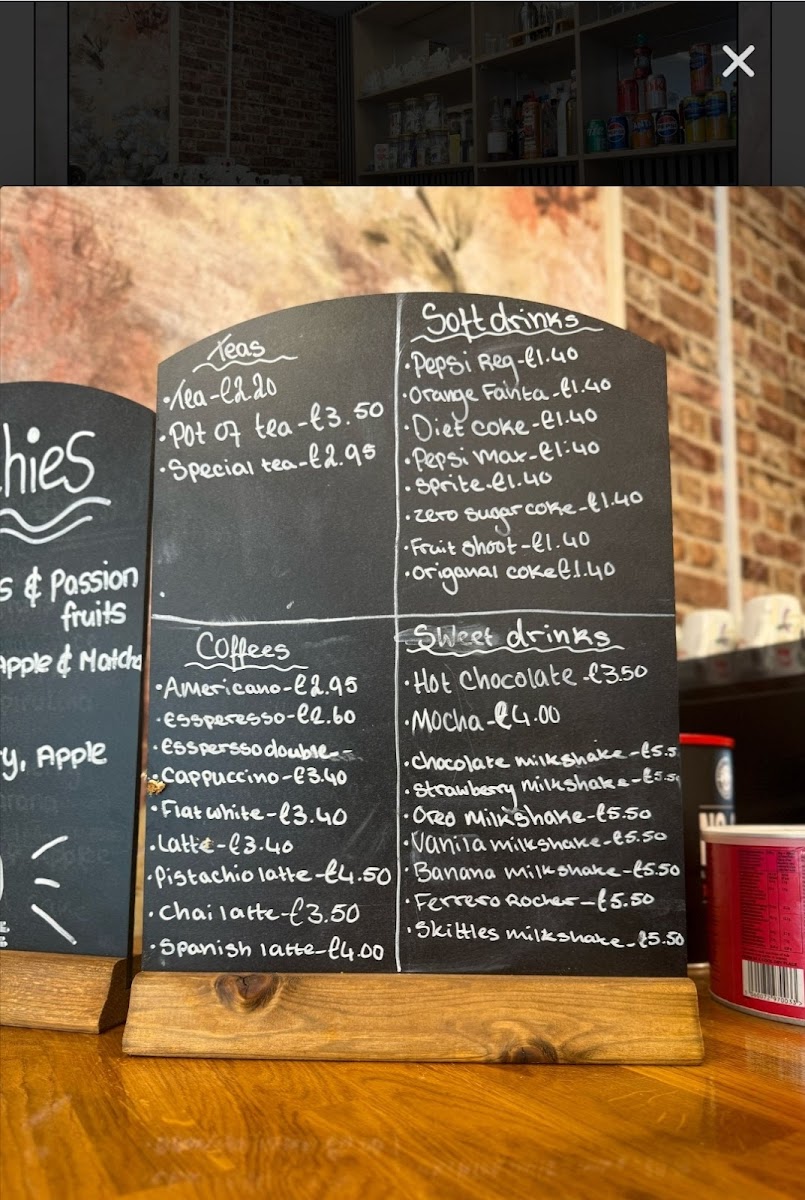 hies
s & Passion
fruits
Apple & Matcha
y, Apple
Teas
·Tea-£2.20
·Pot of tea-£3.50
·Special tea-£2.95
Soft drinks
·Pepsi Reg-£1.40
·Orange Fanta-£1.40
·Diet coke-£1.40
·Pepsi Max-£1.40
·sprite-£1.40
·zero sugar coke-£1.40
·Fruit shoot-£1.40
·origanal coke£1.40
Coffees
·Americano-£2.95
·essperesso-£2.60
·esspersso double--
·Cappuccino-£3.40
·Flat white-£3.40
·Latte-£3.40
·Pistachio latte-£4.50
·Chai latte-£3.50
·Spanish latte-£4.00
Sweet drinks
·Hot Chocolate-£3.50
·Mocha-£4.00
·chocolate milkshake-£5.5
·strawberry milkshake-£5.5
·Oreo milkshake-£5.50
·Vanila milkshake-£5.50
·Banana milkshake-£5.50
·Ferrero Rocher-£5.50
·Skittles milkshake-£5.50